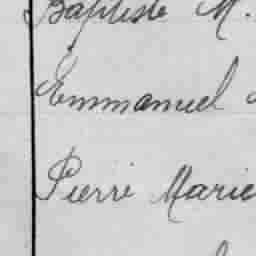 Baptiste M.
Emmanuel
Pierre Marie